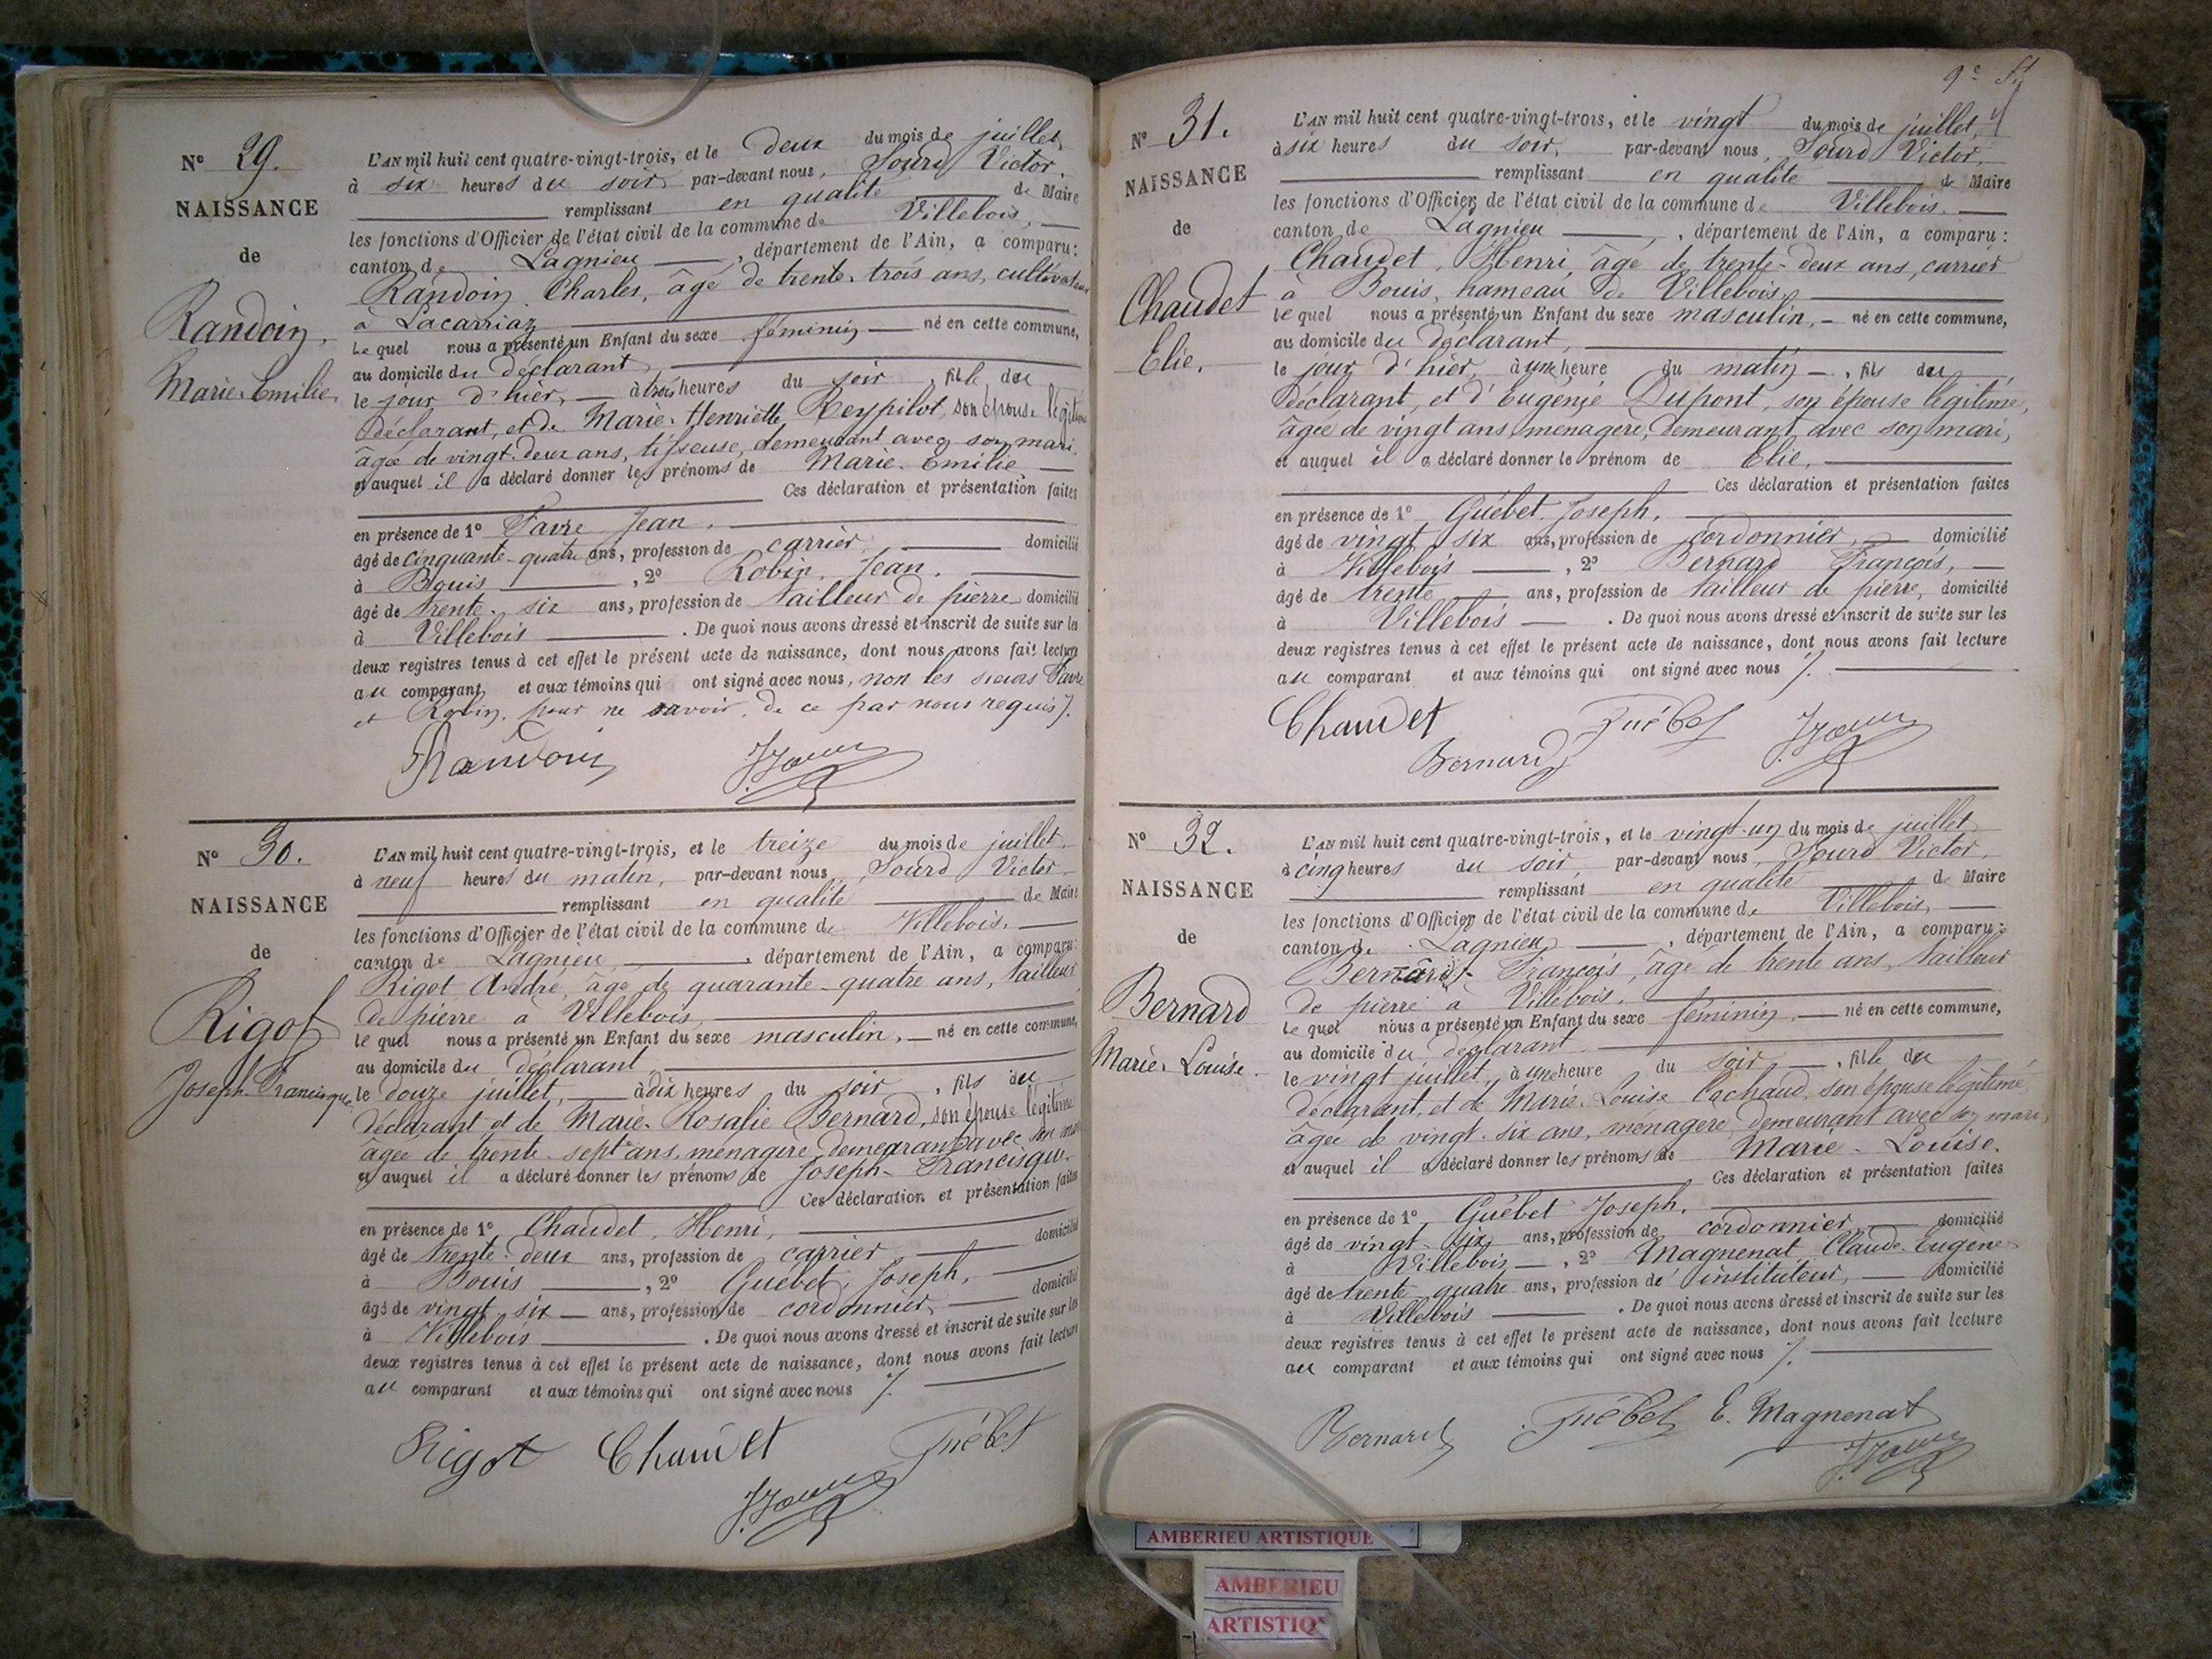 Nº 29.
NAISSANCE
de
Randoin,
Marie-Emilie.
L'AN mil huit cent quatre-vingt-trois, et le deux du mois de juillet,
à six heures du soir, par-devant nous, Sourd Victor,
remplissant en qualité de Maire
les fonctions d'Officier de l'état civil de la commune de Villebois,
canton de Lagnieu, département de l'Ain, a comparu:
Randoin, Charles, âgé de trente-trois ans, cultivateur
à Lacarriaz
Lequel nous a présenté un Enfant du sexe féminin né en cette commune,
au domicile du déclarant,
le jour d'hier, à trois heures du soir, fille du
déclarant, et de Marie-Henriette Reypilot, son épouse légitime
âgée de vingt-deux ans, tisseuse, demeurant avec son mari,
et auquel il a déclaré donner les prénoms de Marie-Emilie
Ces déclaration et présentation faites
en présence de 1º Favre Jean,
âgé de cinquante-quatre ans, profession de carrier, domicilié
à Bouis, 2º Robin, Jean,
âgé de trente-six ans, profession de tailleur de pierre domicilié
à Villebois. De quoi nous avons dressé et inscrit de suite sur les
deux registres tenus à cet effet le présent acte de naissance, dont nous avons fait lecture
au comparant et aux témoins qui ont signé avec nous, non les sieurs Favre
et Robin, pour ne savoir, de ce par nous requis.
Randoin
Nº 30.
NAISSANCE
de
Rigot
Joseph-Francisque
L'AN mil huit cent quatre-vingt-trois, et le treize du mois de juillet,
à neuf heures du matin, par-devant nous, Sourd Victor,
remplissant en qualité de Maire
les fonctions d'Officier de l'état civil de la commune de Villebois,
canton de Lagnieu, département de l'Ain, a comparu:
Rigot, André, âgé de quarante-quatre ans, tailleur
de pierre à Villebois,
Lequel nous a présenté un Enfant du sexe masculin, né en cette commune,
au domicile du déclarant
le douze juillet, à dix heures du soir, fils du
déclarant et de Marie-Rosalie Bernard, son épouse légitime
âgée de trente-sept ans, ménagère, demeurant avec son mari
et auquel il a déclaré donner les prénoms de Joseph-Francisque.
Ces déclaration et présentation faites
en présence de 1º Chaudet, Henri,
âgé de trente-deux ans, profession de carrier, domicilié
à Bouis, 2º Guébet, Joseph,
âgé de vingt-six ans, profession de cordonnier, domicilié
à Villebois. De quoi nous avons dressé et inscrit de suite sur les
deux registres tenus à cet effet le présent acte de naissance, dont nous avons fait lecture
au comparant et aux témoins qui ont signé avec nous
Rigot Chaudet Guébet
Nº 31.
NAISSANCE
de
Chaudet
Elie.
L'AN mil huit cent quatre-vingt-trois, et le vingt du mois de juillet,
à six heures du soir, par-devant nous, Sourd Victor,
remplissant en qualité de Maire
les fonctions d'Officier de l'état civil de la commune de Villebois.
canton de Lagnieu, département de l'Ain, a comparu:
Chaudet, Henri, âgé de trente-deux ans, carrier
à Bouis, hameau de Villebois,
Lequel nous a présenté un Enfant du sexe masculin, né en cette commune,
au domicile du déclarant,
le jour d'hier, à une heure du matin, fils du
déclarant, et d'Eugénie Dupont, son épouse légitime,
âgée de vingt ans, ménagère, demeurant avec son mari,
et auquel il a déclaré donner le prénom de Elie,
Ces déclaration et présentation faites
en présence de 1º Guébet, Joseph,
âgé de vingt-six ans, profession de cordonnier, domicilié
à Villebois, 2º Bernard François,
âgé de trente ans, profession de tailleur de pierre, domicilié
à Villebois. De quoi nous avons dressé et inscrit de suite sur les
deux registres tenus à cet effet le présent acte de naissance, dont nous avons fait lecture
au comparant et aux témoins qui ont signé avec nous
Chaudet Guébet
Bernard
Nº 32.
NAISSANCE
de
Bernard
Marie-Louise.
L'AN mil huit cent quatre-vingt-trois, et le vingt-un du mois de juillet
à cinq heures du soir, par-devant nous, Sourd Victor,
remplissant en qualité de Maire
les fonctions d'Officier de l'état civil de la commune de Villebois,
canton de Lagnieu, département de l'Ain, a comparu:
Bernard, François, âgé de trente ans, tailleur
de pierre à Villebois,
Lequel nous a présenté un Enfant du sexe féminin, né en cette commune,
au domicile du déclarant
le vingt juillet, à une heure du soir, fille du
déclarant, et de Marie-Louise Cachaud, son épouse légitime
âgée de vingt-six ans, ménagère, demeurant avec son mari,
et auquel il a déclaré donner les prénoms de Marie-Louise.
Ces déclaration et présentation faites
en présence de 1º Guébet Joseph,
âgé de vingt-six ans, profession de cordonnier, domicilié
à Villebois, 2º Magnenat Claude-Eugène
âgé de trente-quatre ans, profession de instituteur, domicilié
à Villebois. De quoi nous avons dressé et inscrit de suite sur les
deux registres tenus à cet effet le présent acte de naissance, dont nous avons fait lecture
au comparant et aux témoins qui ont signé avec nous
Bernard Guébet E. Magnenat
AMBERIEU ARTISTIQUE
AMBERIEU
ARTISTIQ